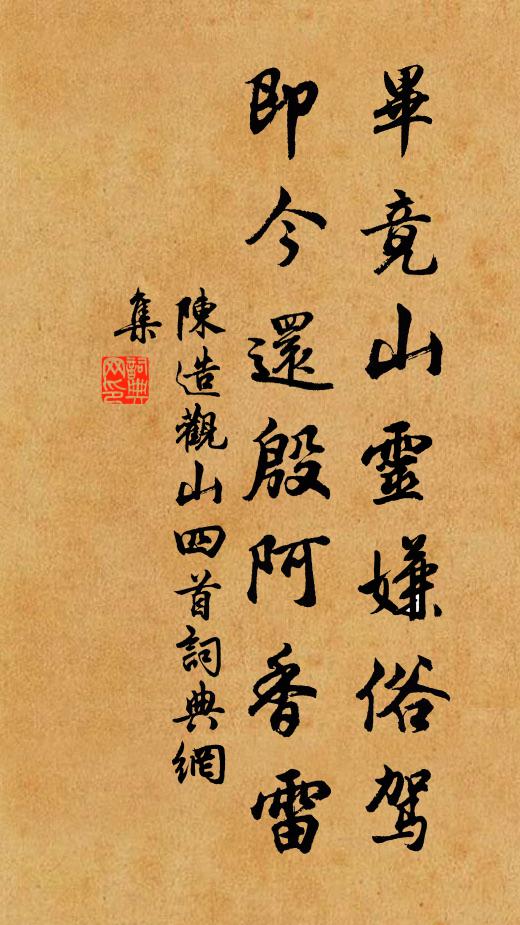 畢竟山靈嫌俗駕
即今還殷阿香雷
陳造觀山四首詞典網
集
詞典网印